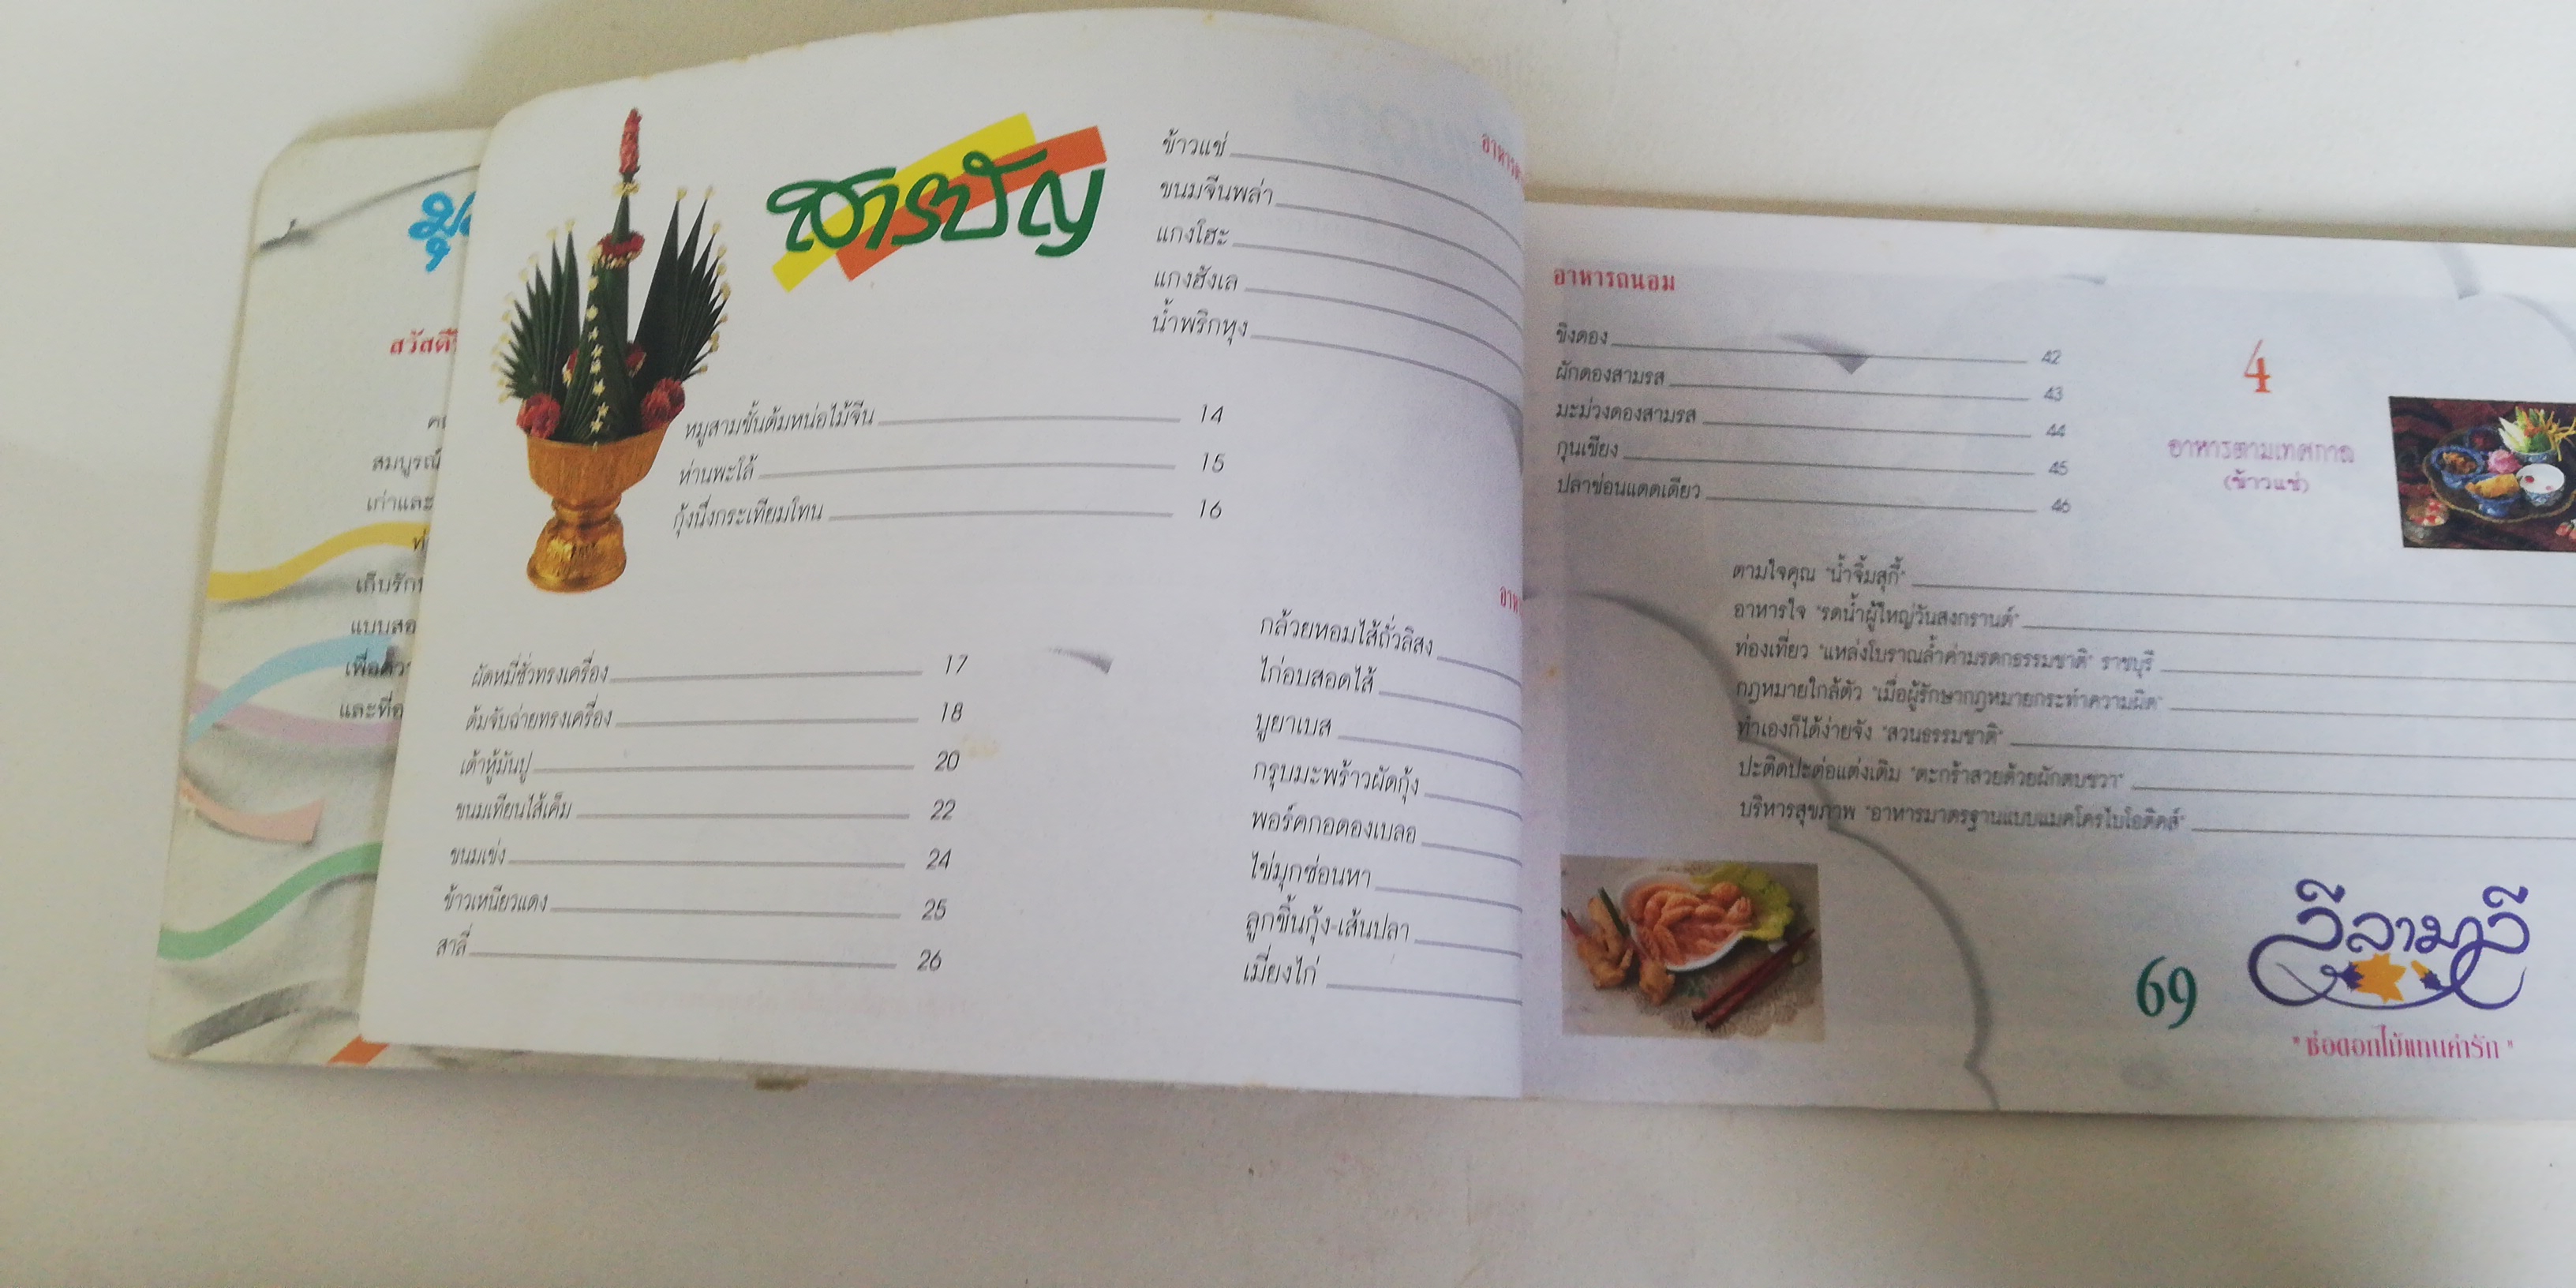 สารบัญ
ข้าวแช่
ขนมจีนพล่า
แกงโฮะ
แกงฮังเล
น้ำพริกหุง
หมูสามชั้นต้มหน่อไม้จีน 14
ห่านพะโล้ 15
กุ้งนึ่งกระเทียมโทน 16
ผัดหมี่ซั่วทรงเครื่อง 17
ต้มจับฉ่ายทรงเครื่อง 18
เต้าหู้มันปู 20
ขนมเทียนไส้เค็ม 22
ขนมเข่ง 24
ข้าวเหนียวแดง 25
สาลี่ 26
กล้วยหอมไส้ถั่วลิสง
ไก่อบสอดไส้
บูยาเบส
กรุบมะพร้าวผัดกุ้ง
พอร์คกอดองเบลอ
ไข่มุกซ่อนหา
ลูกชิ้นกุ้ง-เส้นปลา
เมี่ยงไก่
สวัสดี
สมบูรณ์
เก่าและ
แบบสอ
และที่
อาหารถนอม
ขิงดอง 42
ผักดองสามรส 43
มะม่วงดองสามรส 44
กุนเชียง 45
ปลาช่อนแดดเดียว 46
4
อาหารตามเทศกาล
(ข้าวแช่)
ตามใจคุณ "น้ำจิ้มสุกี้"
อาหารใจ "รดน้ำผู้ใหญ่วันสงกรานต์"
ท่องเที่ยว "แหล่งโบราณล้ำค่ามรดกธรรมชาติ" ราชบุรี
กฎหมายใกล้ตัว "เมื่อผู้รักษากฎหมายกระทำความผิด"
ทำเองก็ได้ง่ายจัง "สวนธรรมชาติ"
ปะติดปะต่อแต่งเติม "ตะกร้าสวยด้วยผักตบชวา"
บริหารสุขภาพ "อาหารมาตรฐานแบบแมคโครไบโอติคส์"
69
ลีลามาลี
"ช่อดอกไม้แทนคำรัก"